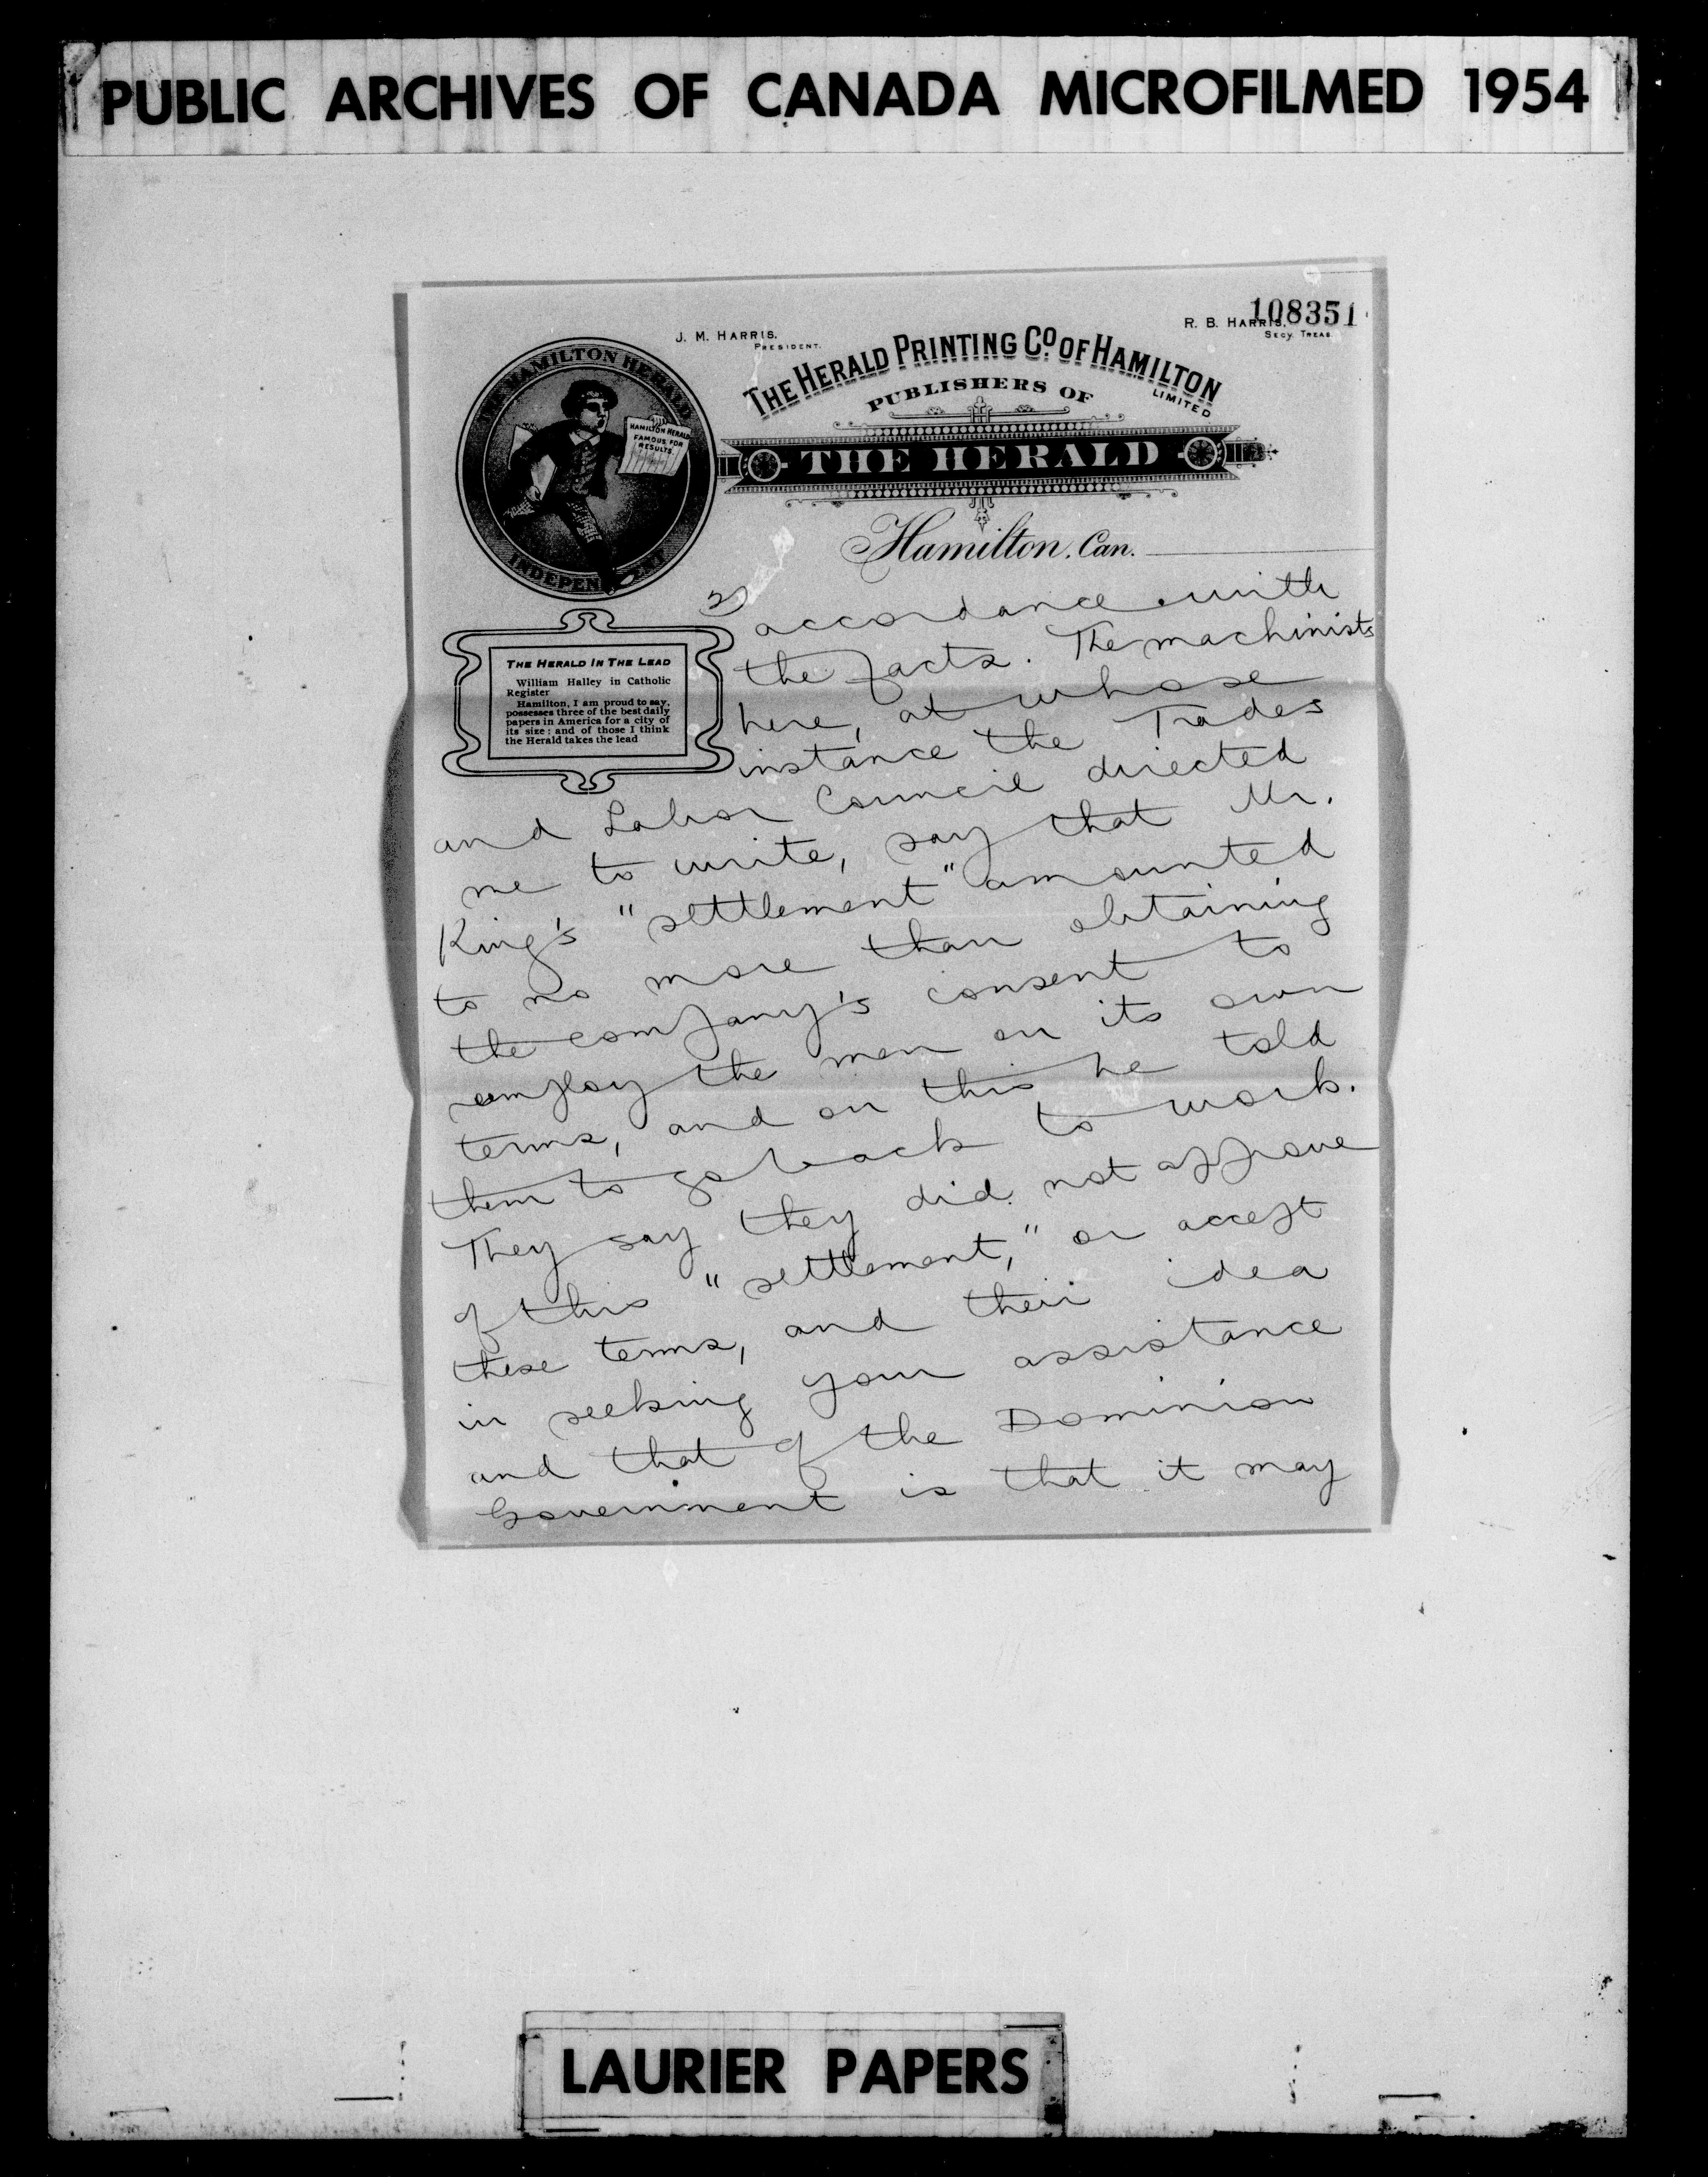 PUBLIC ARCHIVES OF CANADA MICROFILMED 1954
108351
J. M. HARRIS,
PRESIDENT.
R. B. HARRIS,
SECY. TREAS.
THE HERALD PRINTING Co. OF HAMILTON
LIMITED
PUBLISHERS OF
THE HERALD
HAMILTON HERALD
INDEPENDENT
HAMILTON HERALD
FAMOUS FOR
RESULTS.
Hamilton, Can.
THE HERALD IN THE LEAD
William Halley in Catholic
Register
Hamilton, I am proud to say,
possesses three of the best daily
papers in America for a city of
its size; and of those I think
the Herald takes the lead
2)
accordance with
the facts. The machinists
here, at whose
instance the Trades
and Labor Council directed
me to write, say that Mr.
King's "settlement" amounted
to no more than obtaining
the company's consent to
employ the men on its own
terms, and on this he told
them to go back to work.
They say they did not approve
of this "settlement," or accept
these terms, and their idea
in seeking your assistance
and that of the Dominion
Government is that it may
LAURIER PAPERS